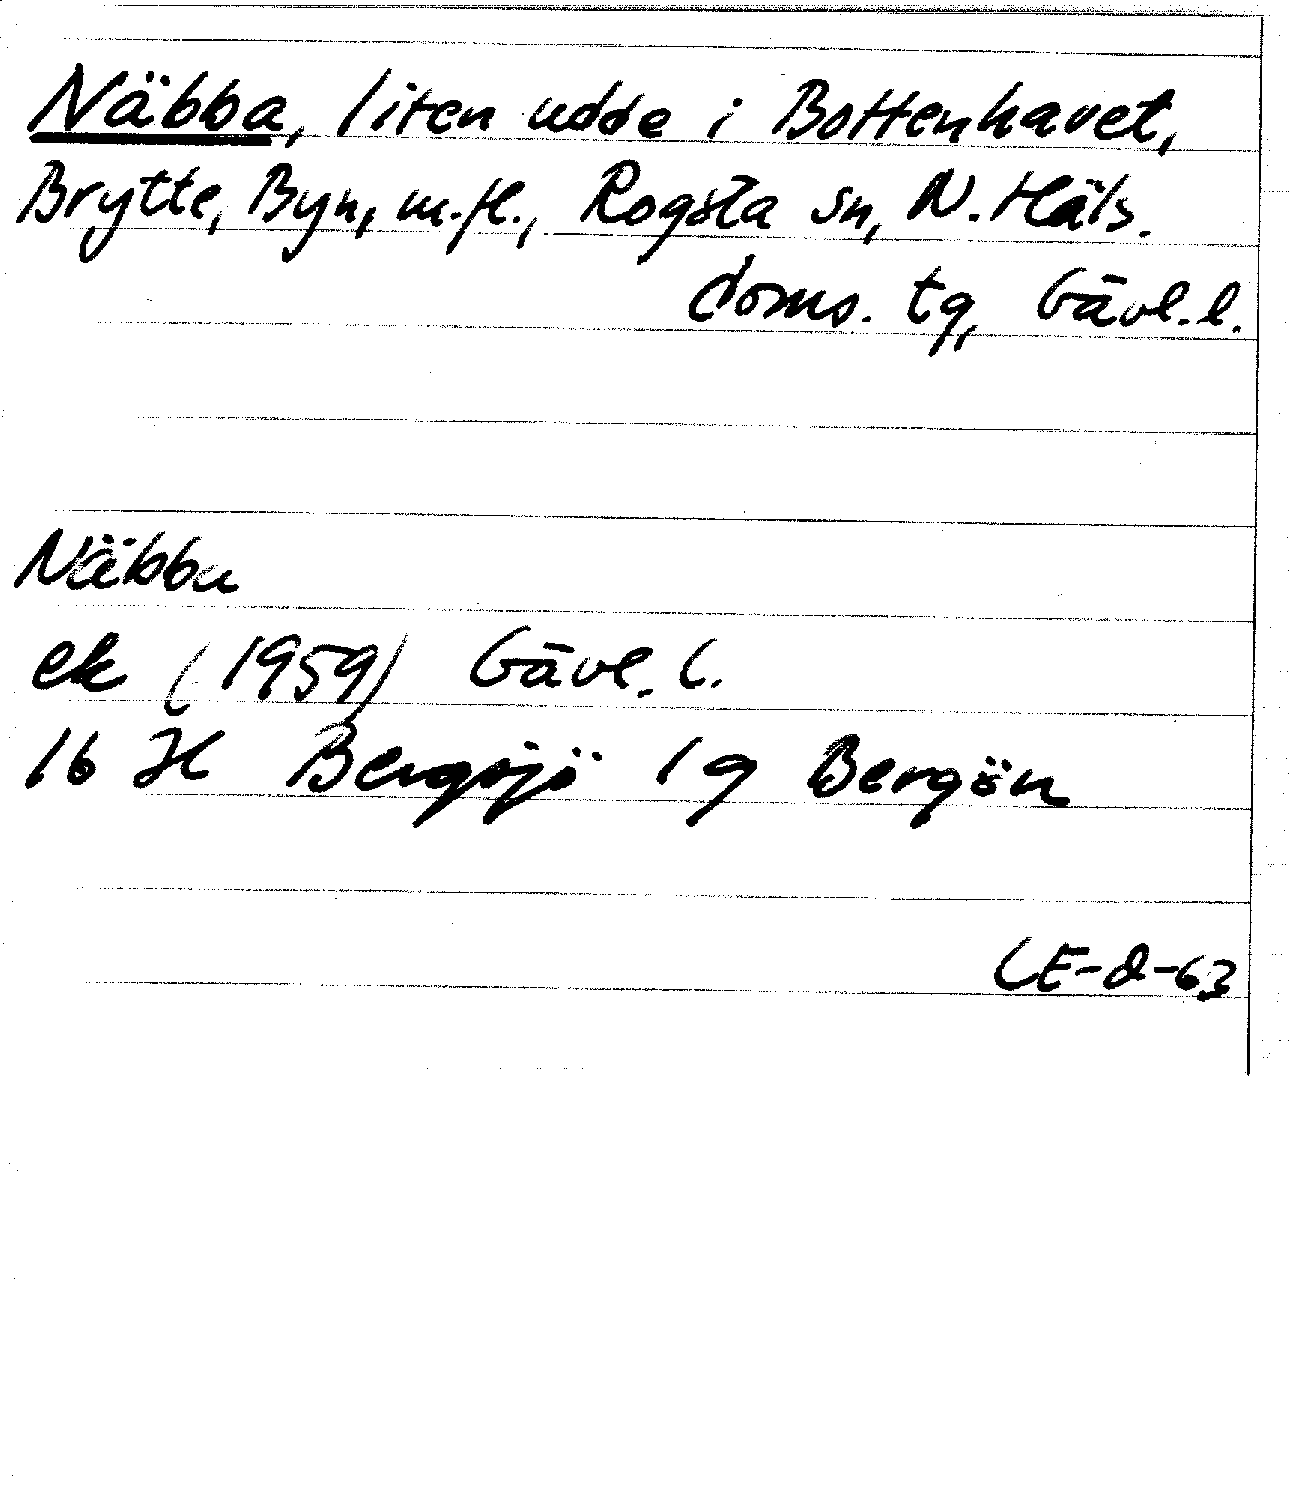 Näbba, liten udde i Bottenhavet,
Brytte, Byn, m.fl., Rogsta sn, N. Häls.
doms. tg, Gävl. l.
Näbba
ek (1959) Gävl. l.
16 H Bergsjö 1g Bergön
LE-d-63